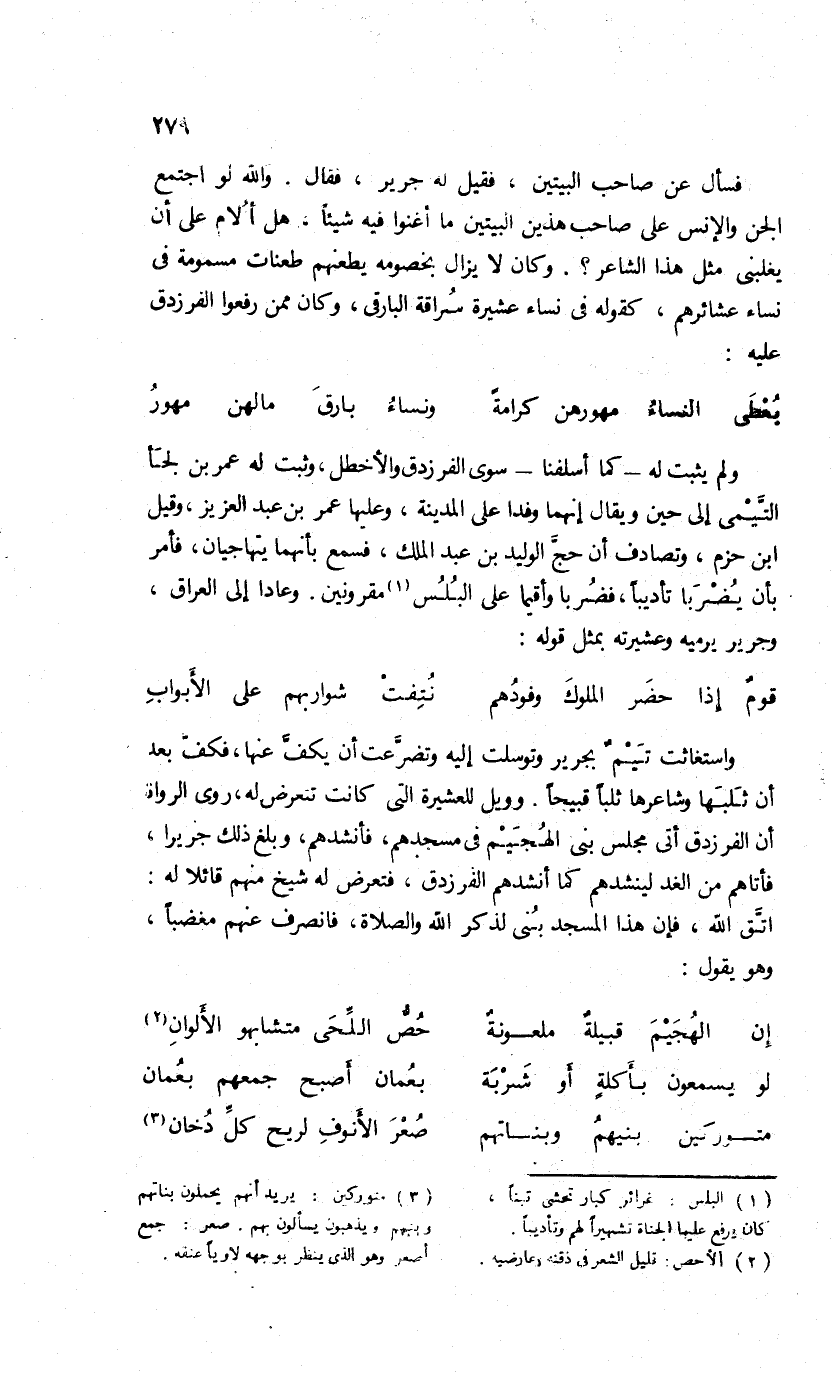 ٢٧٩
فسأل عن صاحب البيتين ، فقيل له جرير ، فقال . والله لو اجتمع
الجن والإنس على صاحب هذين البيتين ما أغنوا فيه شيئاً ، هل أُلام على أن
يغلبنى مثل هذا الشاعر ؟ . وكان لا يزال بخصومه يطعنهم طعنات مسمومة فى
نساء عشائرهم ، كقوله فى نساء عشيرة سُراقة البارقى ، وكان ممن رفعوا الفرزدق
عليه :
يُعْطَى النساءُ مهورهن كرامةً ونساءُ بارقَ مالهن مهورُ
ولم يثبت له – كما أسلفنا – سوى الفرزدق والأخطل ، وثبت له عمر بن لجأ
التَّيْمى إلى حين ويقال إنهما وفدا على المدينة ، وعليها عمر بن عبد العزيز ، وقيل
ابن حزم ، وتصادف أن حجَّ الوليد بن عبد الملك ، فسمع بأنهما يتهاجيان ، فأمر
بأن يُضْرَبا تأديباً ، فضُربا وأقيما على البُلُس (١) مقرونين . وعادا إلى العراق ،
وجرير يرميه وعشيرته بمثل قوله :
قومٌ إذا حضَر الملوكَ وفودُهم نُتِفتْ شواربهم على الأَبوابِ
واستغاثت تَيْمٌ بجرير وتوسلت إليه وتضرَّعت أن يكفَّ عنها ، فكفّ بعد
أن ثَلَبَها وشاعرها ثلباً قبيحاً . وويل للعشيرة التى كانت تتعرض له ، روى الرواة
أن الفرزدق أتى مجلس بنى الهُجَيْم فى مسجدهم ، فأنشدهم ، وبلغ ذلك جريرا ،
فأتاهم من الغد لينشدهم كما أنشدهم الفرزدق ، فتعرض له شيخ منهم قائلا له :
اتَّق الله ، فإن هذا المسجد بُنى لذكر الله والصلاة ، فانصرف عنهم مغضباً ،
وهو يقول :
إن الهُجَيْمَ قبيلةٌ ملعونةٌ حُصُّ اللِّحَى متشابهو الأَلوانِ (٢)
لو يسمعون بأَكلةٍ أَو شَرْبَة بعُمان أَصبح جمعهم بعُمان
متوركين بنيهمُ وبناتهم صُعْرَ الأُنوفِ لريح كلِّ دُخان (٣)
(١) البلس : غرائر كبار تحشى تبناً ،
كان يرفع عليها الجناة تشهيراً لهم وتأديباً .
(٢) الأحص : قليل الشعر فى ذقنه وعارضيه .
(٣) متوركين : يريد أنهم يحملون بناتهم
وبنيهم ويذهبون يسألون بهم . صعر : جمع
أصعر وهو الذى ينظر بوجهه لاوياً عنقه .